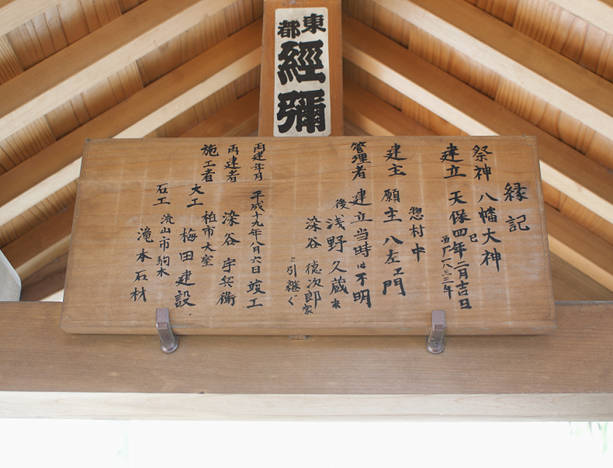 東都
經彌
縁記
祭神 八幡大神
建立 天保四年二月吉日
巳
西一八三三年
惣村中
建主 願主 八左ヱ門
管理者 建立当時は不明
後 浅野久蔵家
染谷 徳次郎家
に引継ぐ
再建年月 平成十九年八月六日 竣工
再建者 染谷 宇兵衛
施工者 柏市大室
大工 梅田建設
石工 流山市駒木
滝本石材